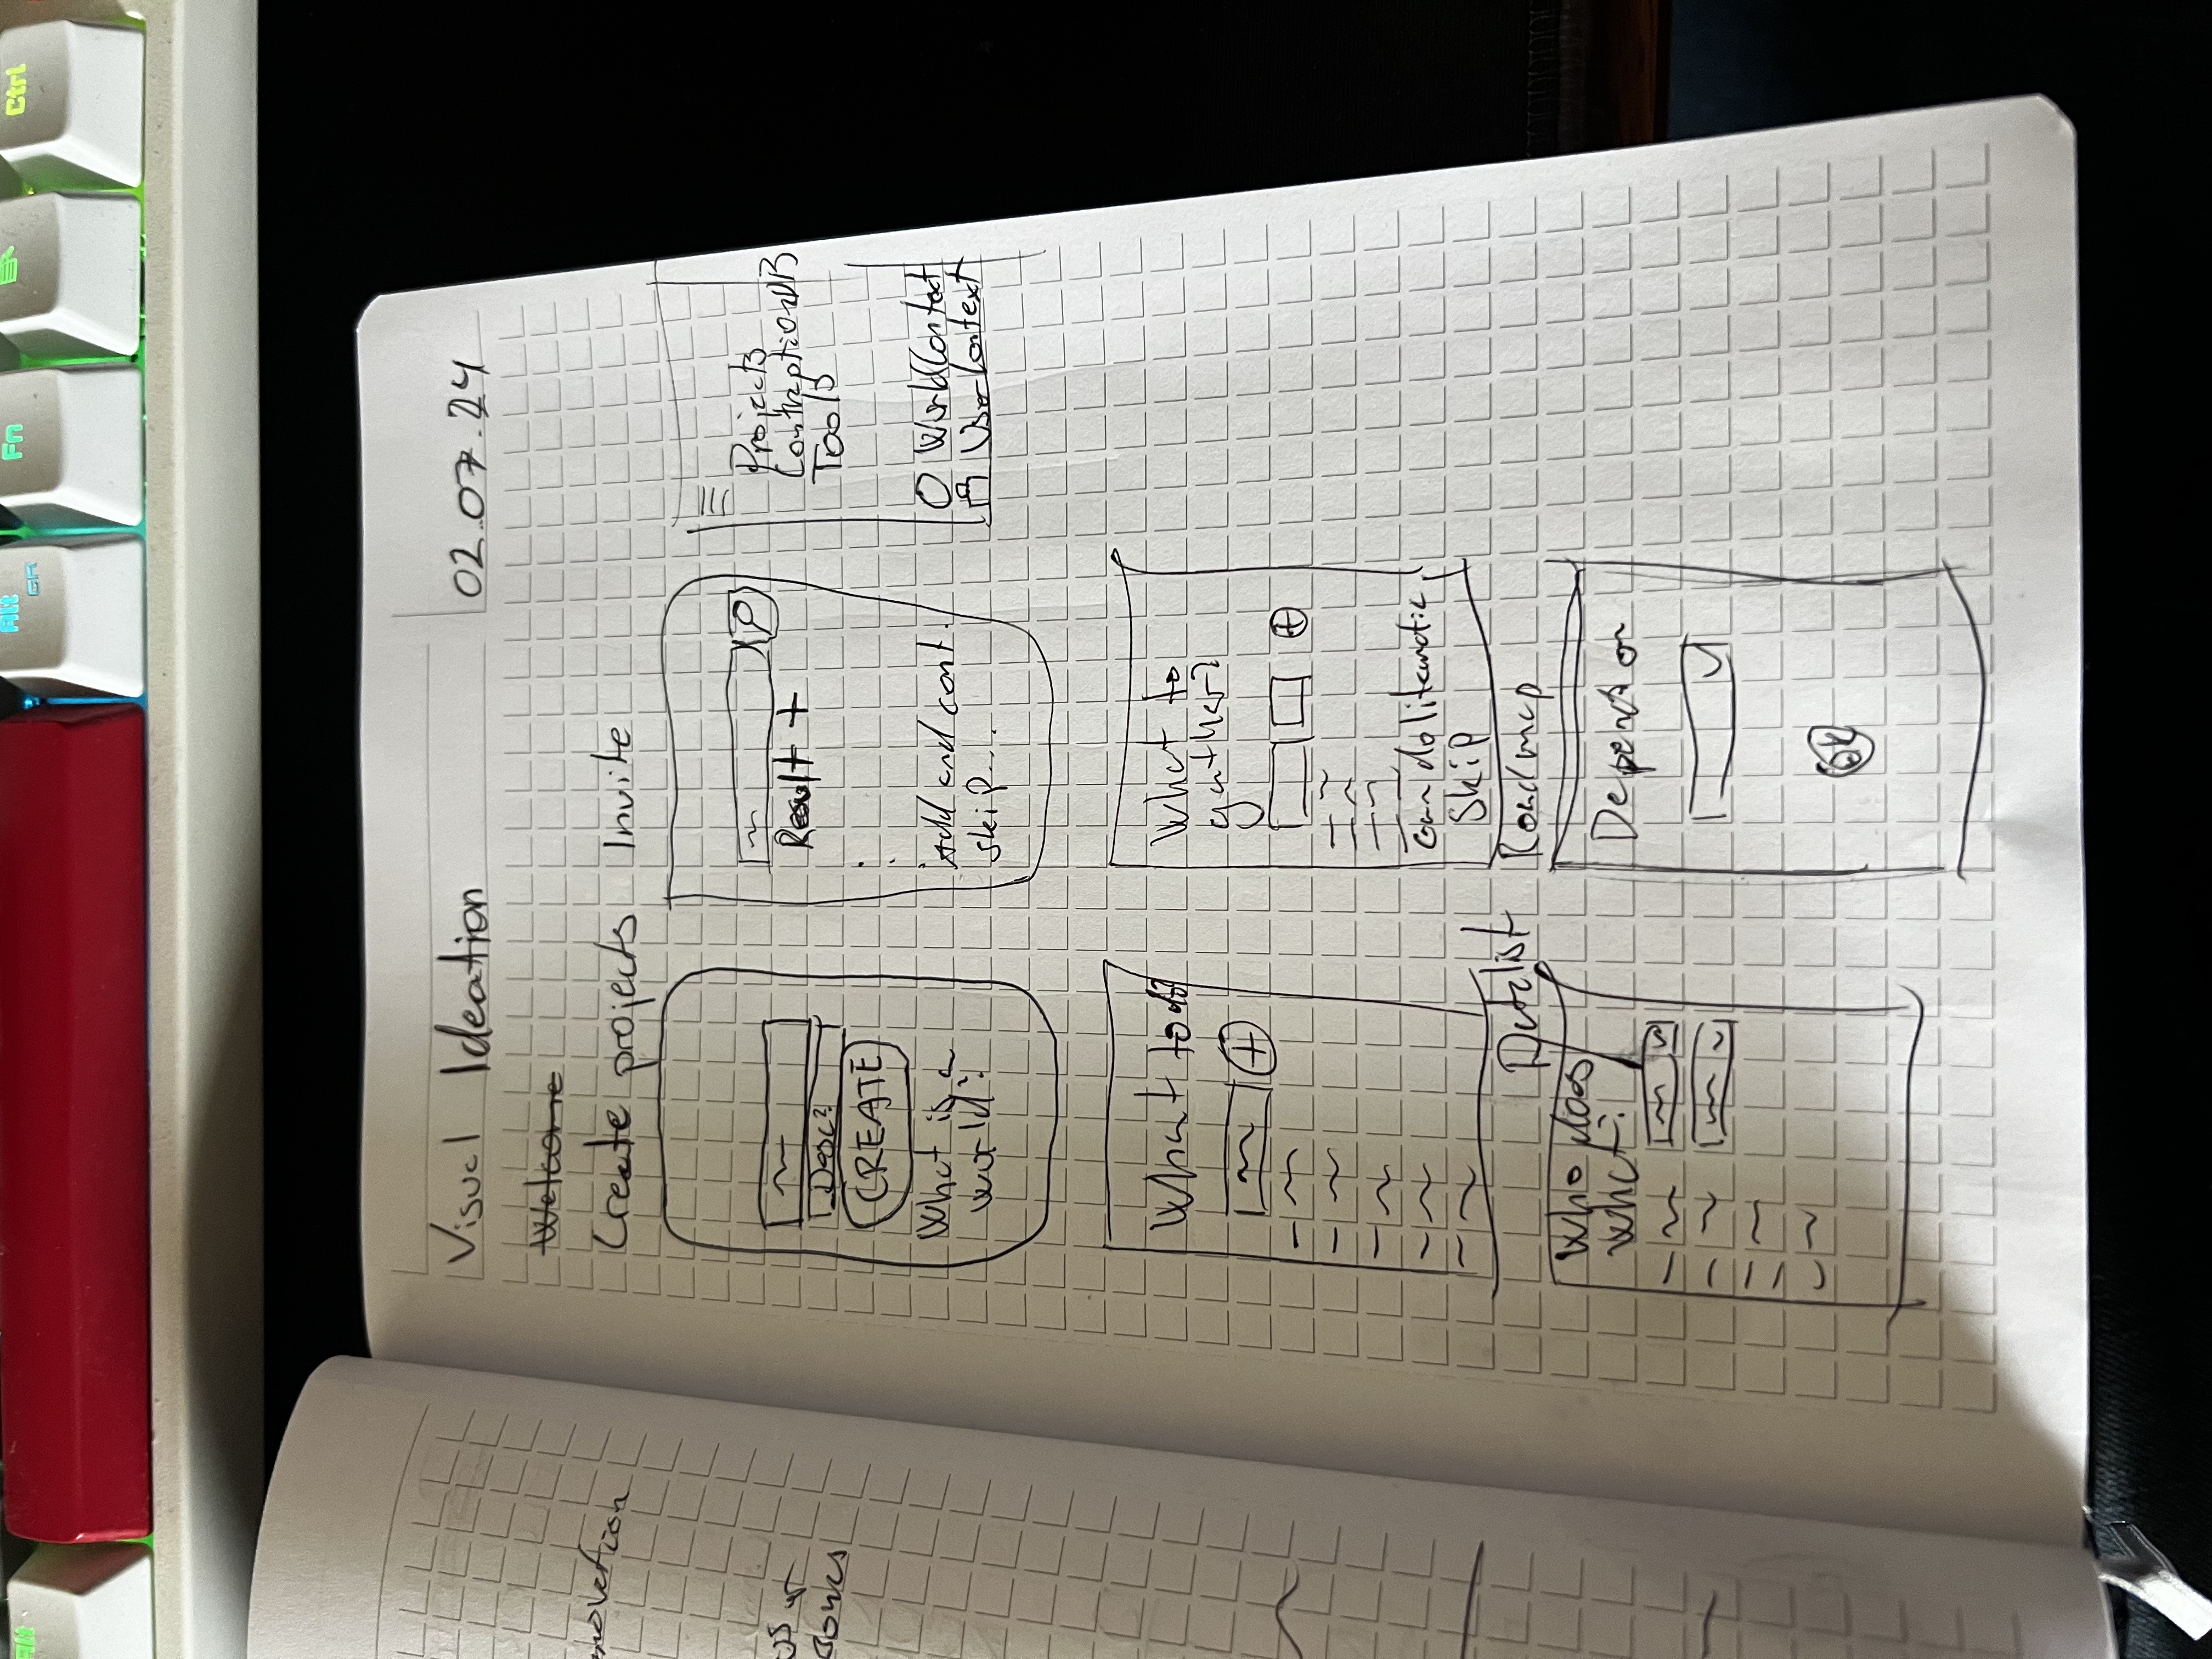 Alt
Alt
GR
Fn
Ctrl
Visual Ideation
02.07.24
Welcome
Create projects
Invite
Desc?
CREATE
What is a
world?
Result +
Add and cont.
skip...
Projects
ContraptionDB
Tools
WorldContext
UserContext
What to do?
What to
gather?
can do litematic,
Skip
Datalist
Roadmap
Who does
what?
Depends on
OK